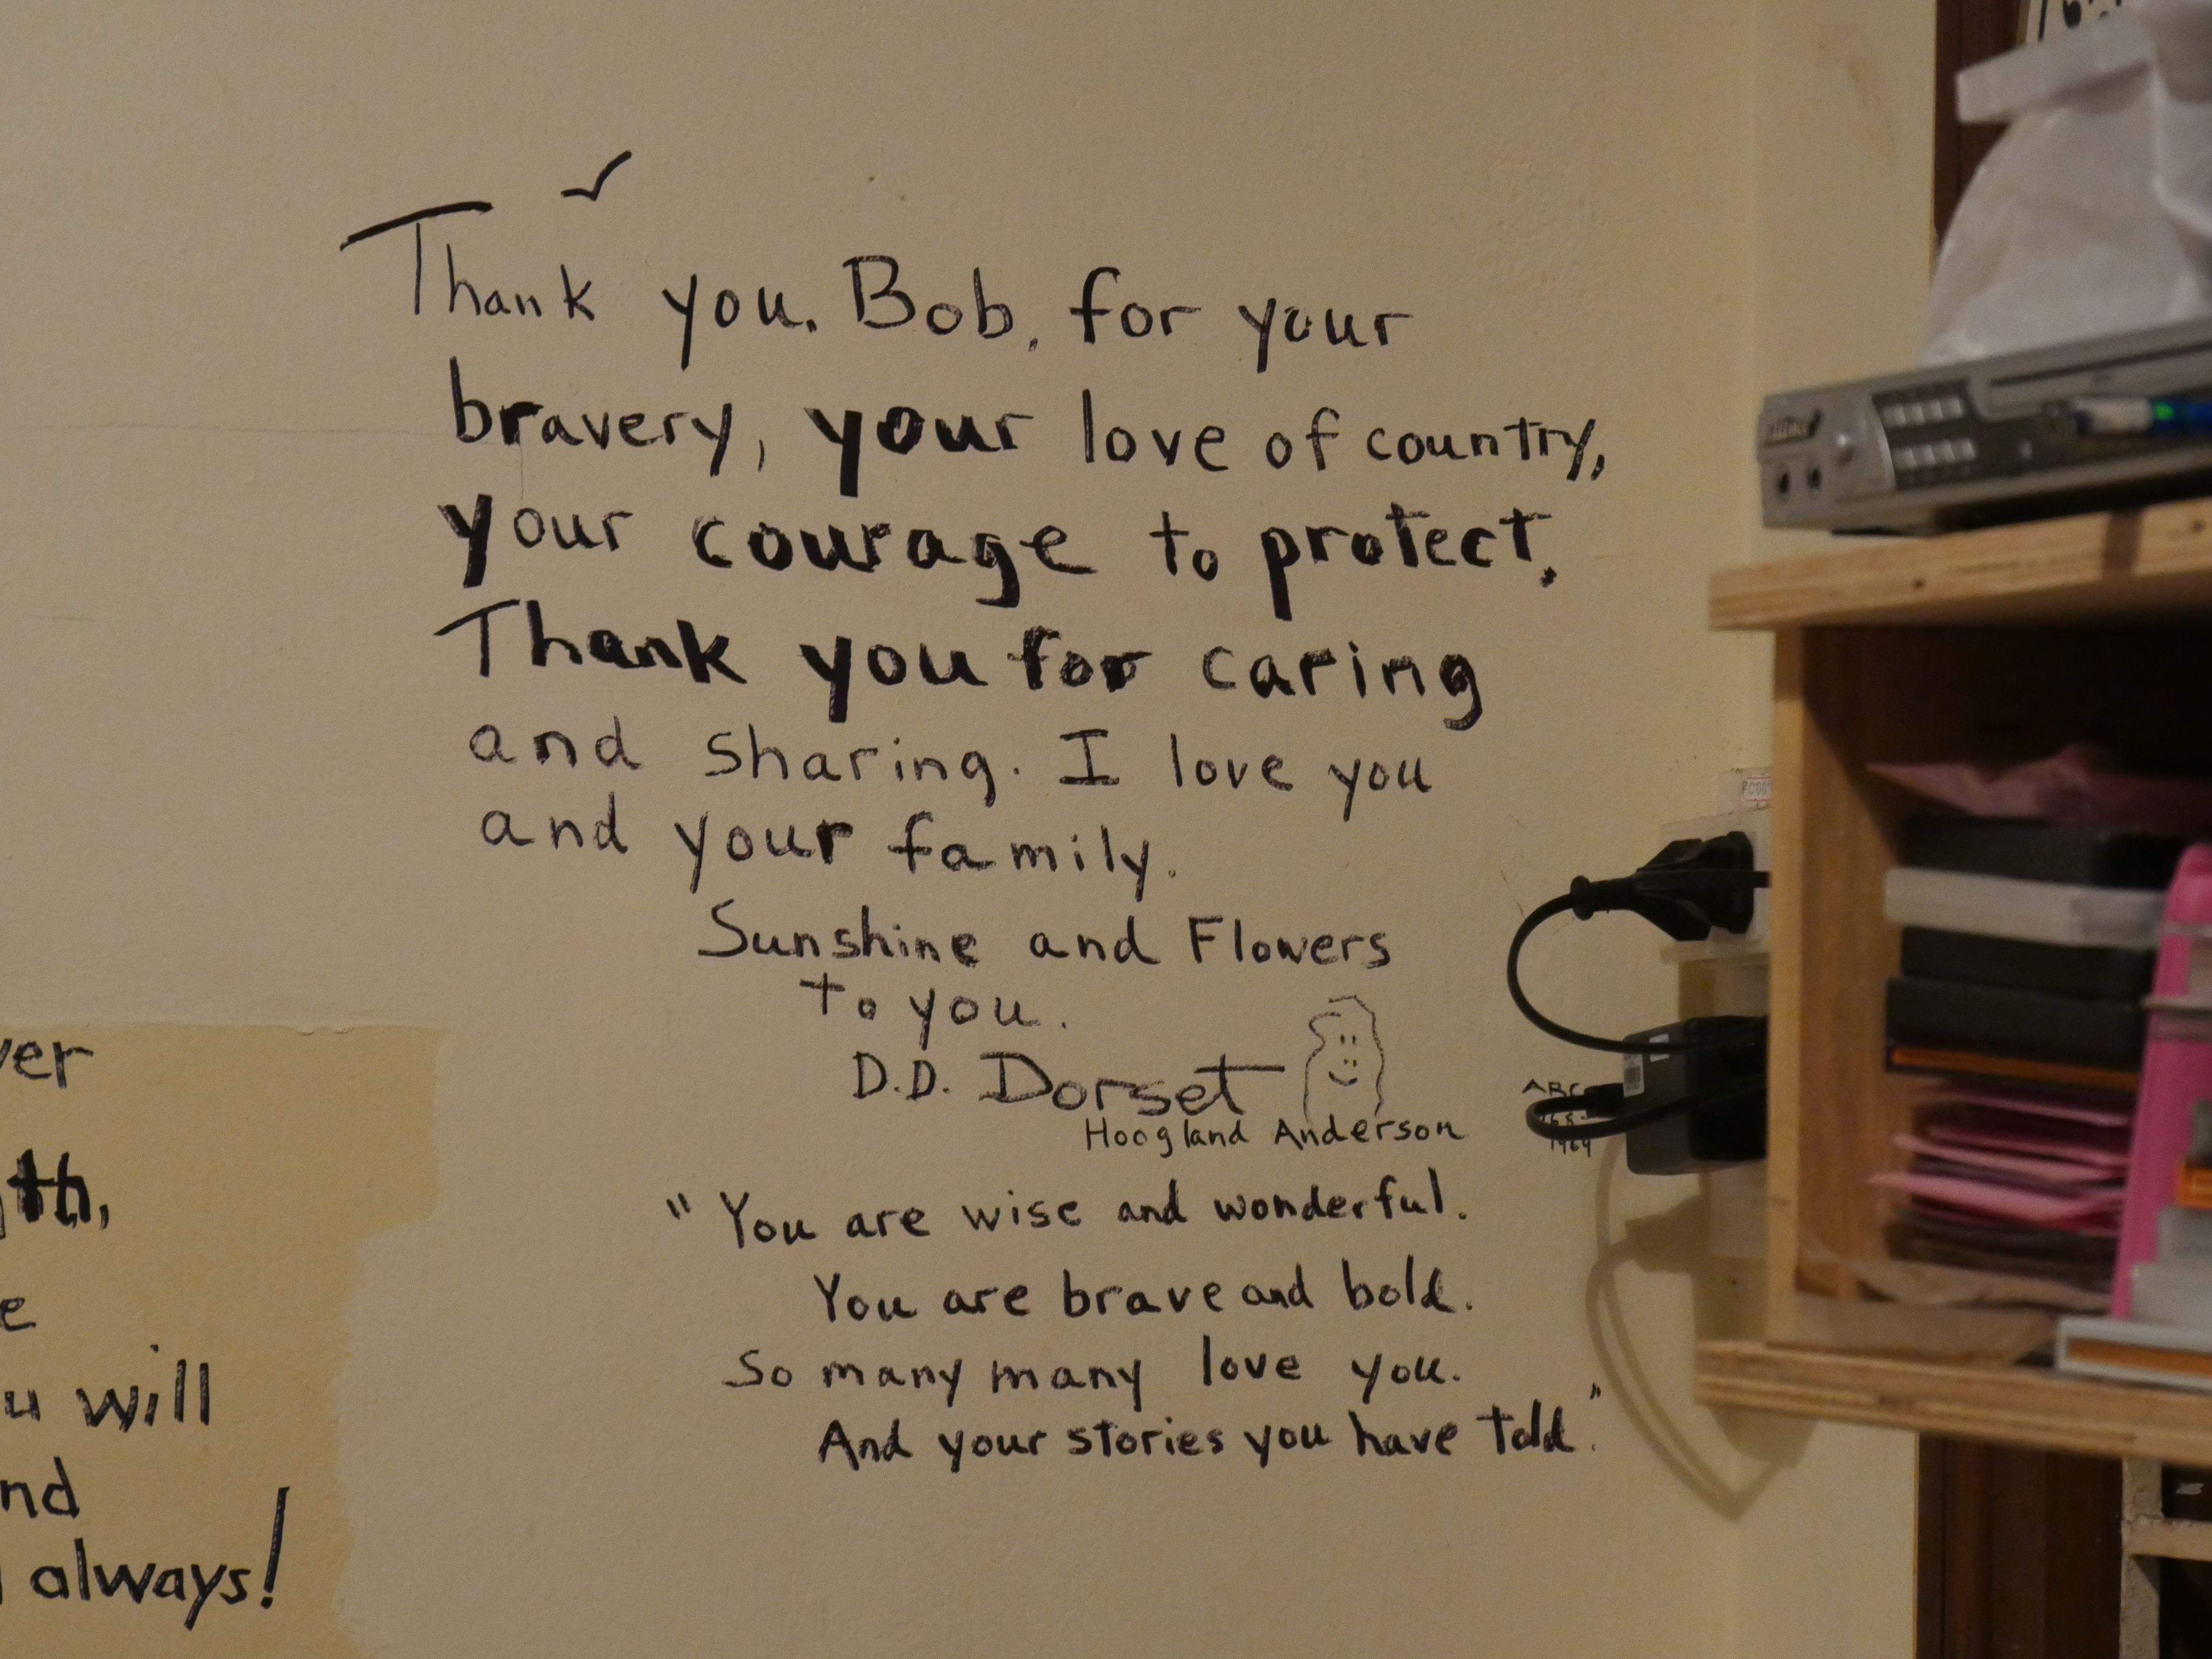 Thank you, Bob, for your
bravery, your love of country,
your courage to protect.
Thank you for caring
and sharing. I love you
and your family.
Sunshine and Flowers
to you.
D.D. Dorset
Hoogland Anderson
"You are wise and wonderful.
You are brave and bold.
So many many love you.
And your stories you have told."
ABC
1964
will
always!